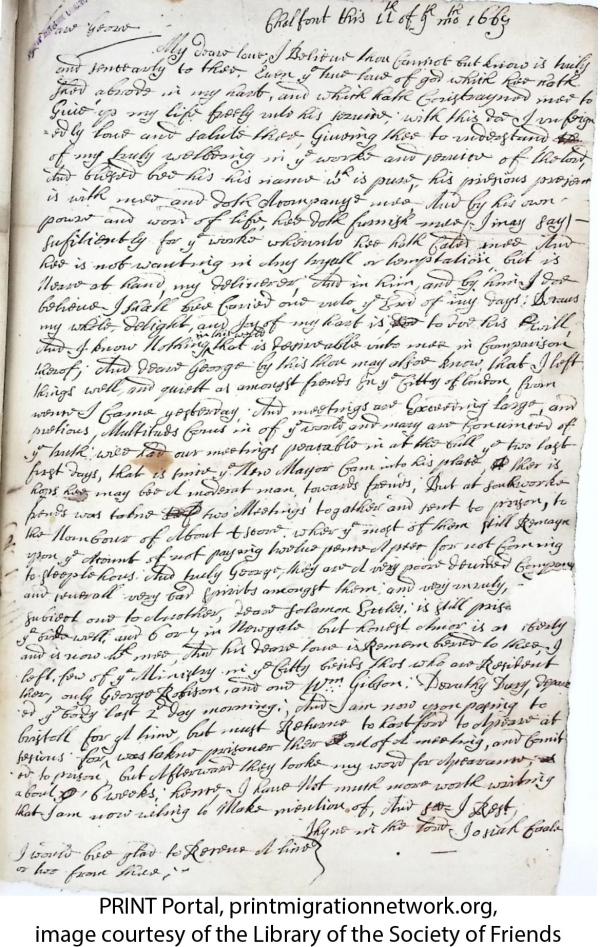 Chalfont this 11th of 9th mo 1663
deare george
My deare love, I Believe thou Cannot but know is truly
and sencearly to thee, Even ye true love of god which hee hath
shed abrode in my hart, and which hath Constrayned mee to
Give up my life freely unto his service; with this doe I unfeign
edly love and salute thee, Giveing thee to understand
of my truly welbeing in ye worke and service of the lord,
And blessed bee his name wch is pure, his presious presence
is with mee, and doth Acompanye mee And by his own
power and word of life, hee doth furnish mee, (I may say)
sufitiently for ye worke whereunto hee hath Caled mee And
hee is not wanting in Any tryall or temptation but is
neare at hand, my deliverer, And in him, and by him I doe
believe I shall bee Caried one unto ye End of my days: Because
my whole delight, and Joy of my hart is to doe his will,
And I know Nothing in this world that is desireable unto mee in Comparison
therof; And deare George by this thou may alsoe know, that I left
things well, and quiett as amongst frends in ye Citty of london from
whence I Came yesterday. And meetings are Exceeding large, and
pretious, Multitudes Coms in of ye world and many are Convinced of
ye truth: wee had our meetings peacable in at the bull ye two last
first days, that is since ye New Mayor Cam into his place, ther is
hops hee may bee A moderat man, towards frends, But at southworke
frends was taken two Meetings together and sent to prison, to
the Nombour of About 4 score, wher ye most of them still Remayn
upon ye Acount of not paying twelve pence Apeec for not Coming
to steeplehous. And truly George, they are A very poore devided Company
and severall very bad spirits amongst them, and very unruly,
subject one to Another, deare Solomon Eccles: is still prisoner
well, and 6 or 7 in Newgate but honest Amor is at liberty
and is now wth mee, And his deare love is Remembered to thee, I
left few of ye Ministry in ye Citty besides thos who are Resident
ther, only George Robison, and one Wm Gibson: Dorothy
ed ye body last 2d day morning. And I am now upon pasing to
bristoll for A time, but must Returne to hartford to Apeare at
sesions for I was taken prisoner ther out of A meeting, and Comit
ed to prison, but Afterward they tooke my word for Apearance,
about 6 weeks hence I have Not much more worth writing
that I am now wiling to Make mention of, And soe I Rest,
Thyne in the lord Josiah Coale
I would bee glad to Receve A line
or two from thee;
PRINT Portal, printmigrationnetwork.org,
image courtesy of the Library of the Society of Friends